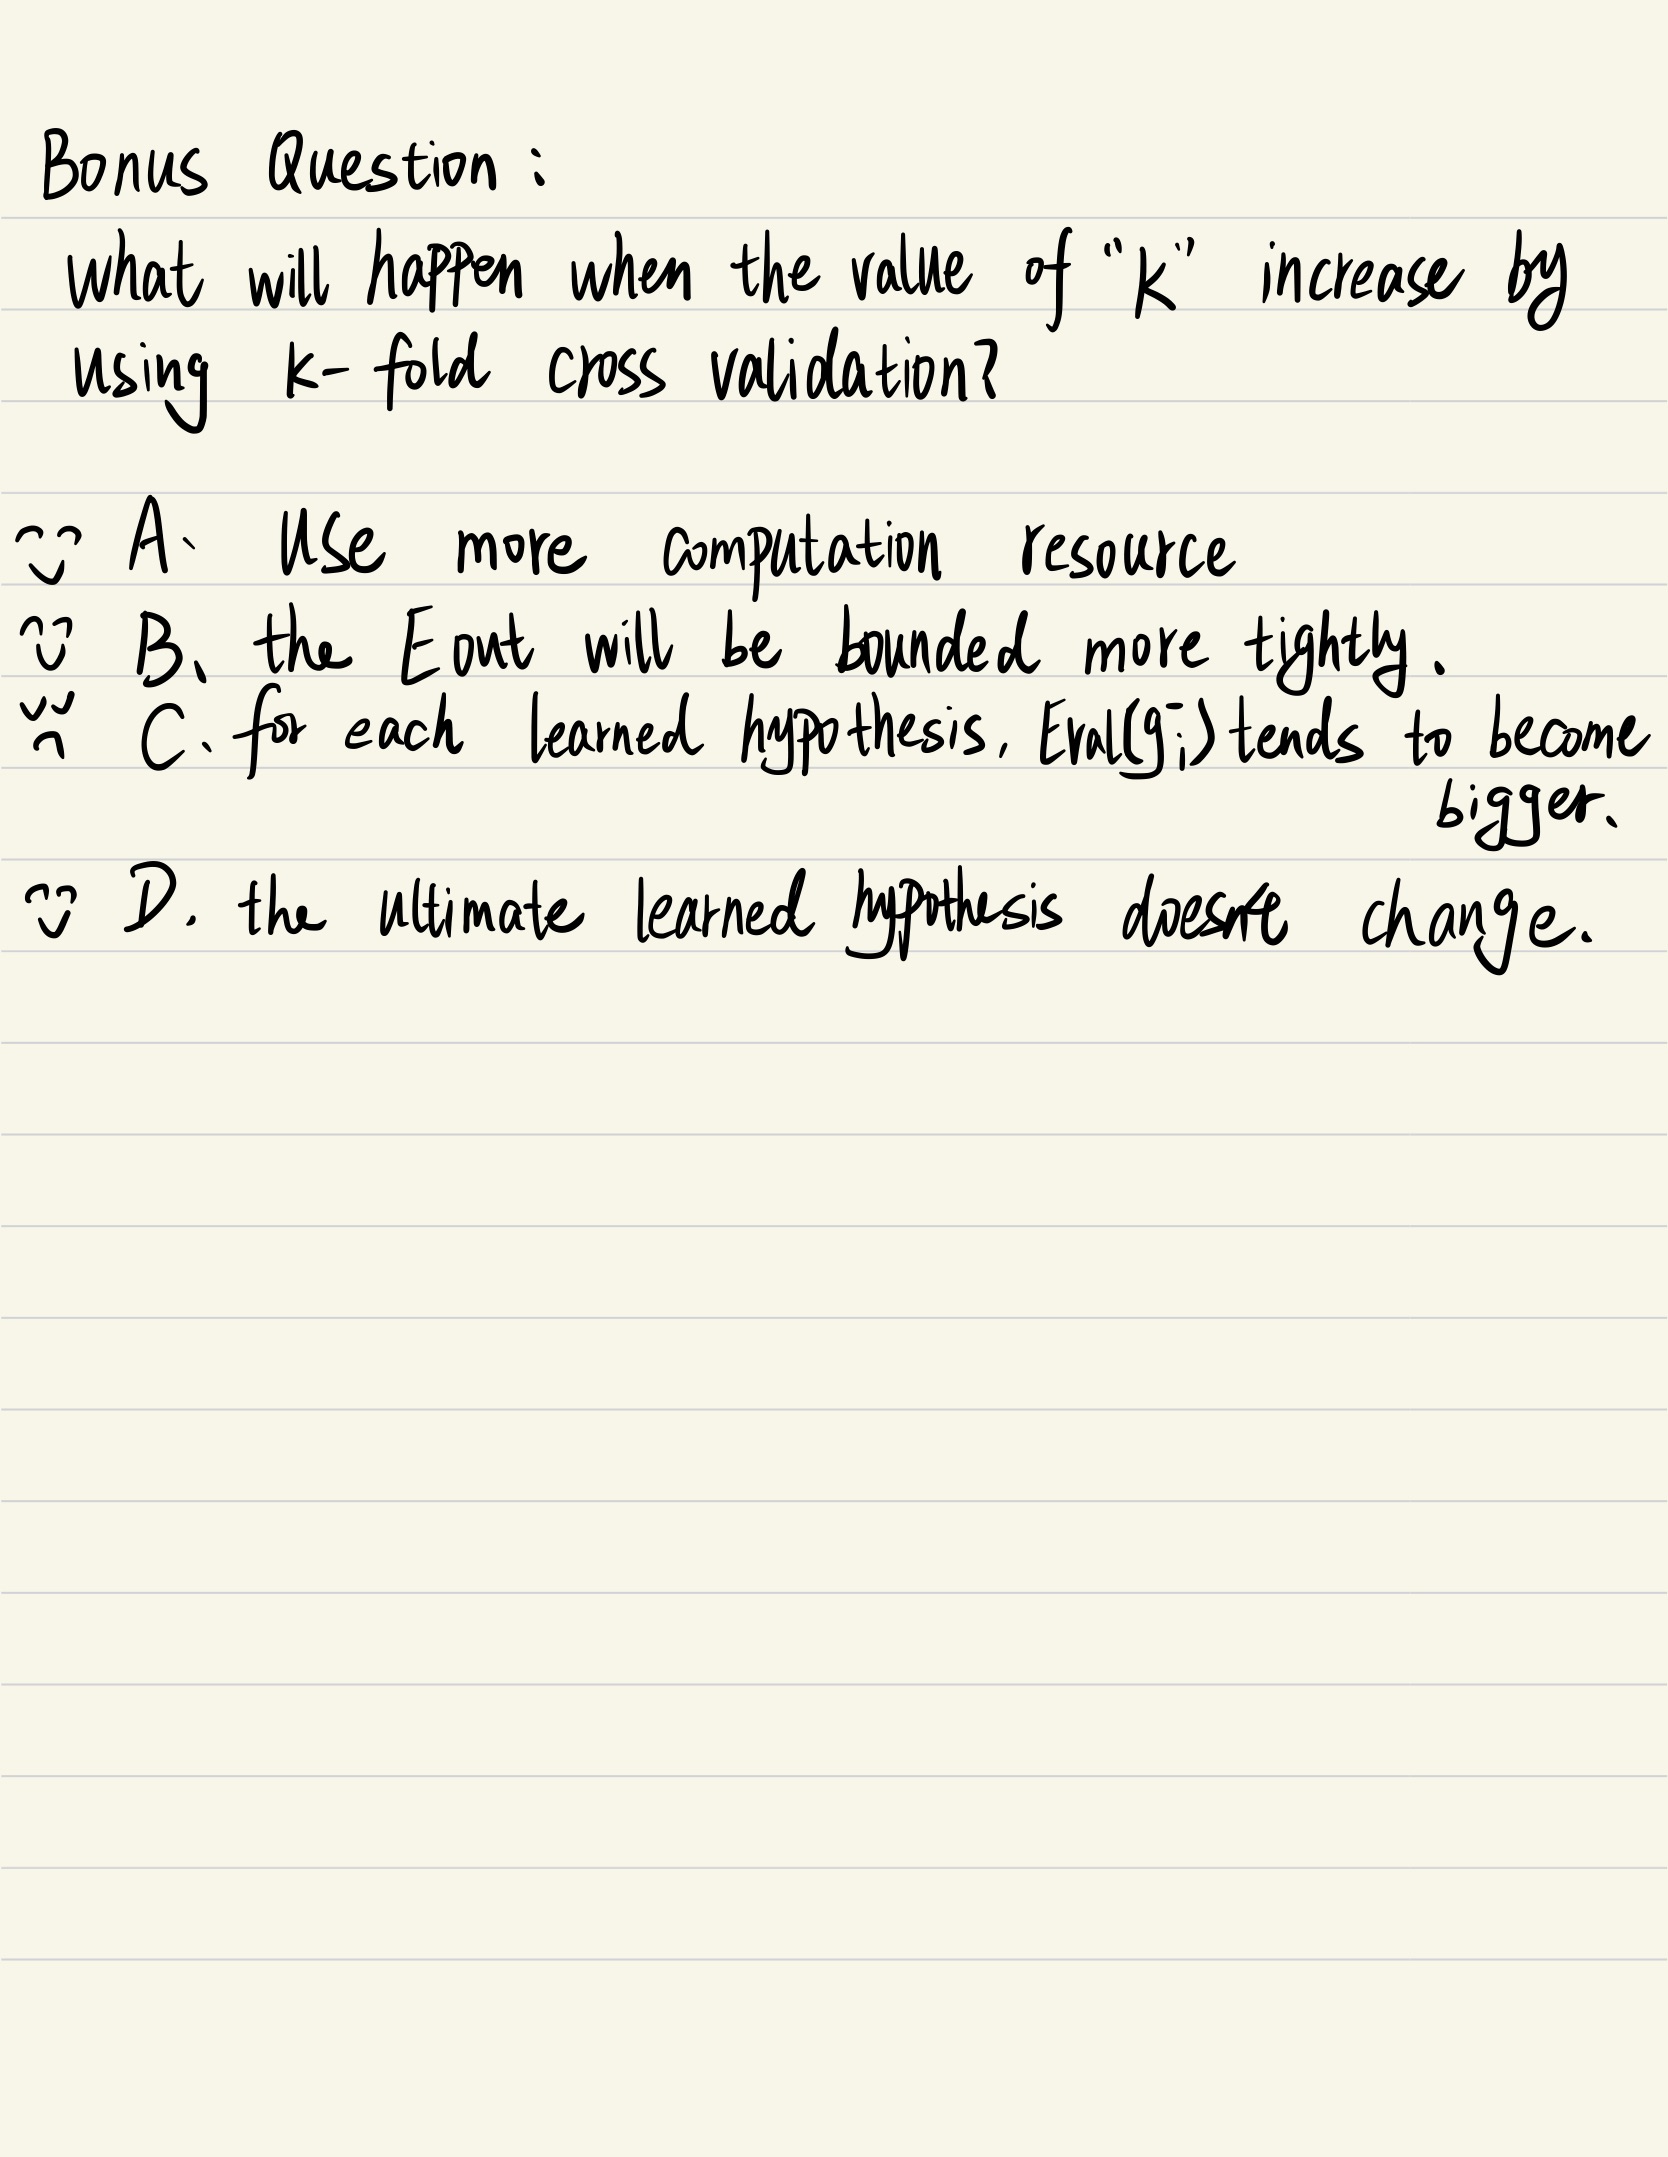 Bonus Question:
What will happen when the value of "k" increase by
using k-fold cross validation?
A. Use more computation resource
B. the Eout will be bounded more tightly.
C. for each learned hypothesis, Eval(gi⁻) tends to become
bigger.
D. the ultimate learned hypothesis doesn't change.